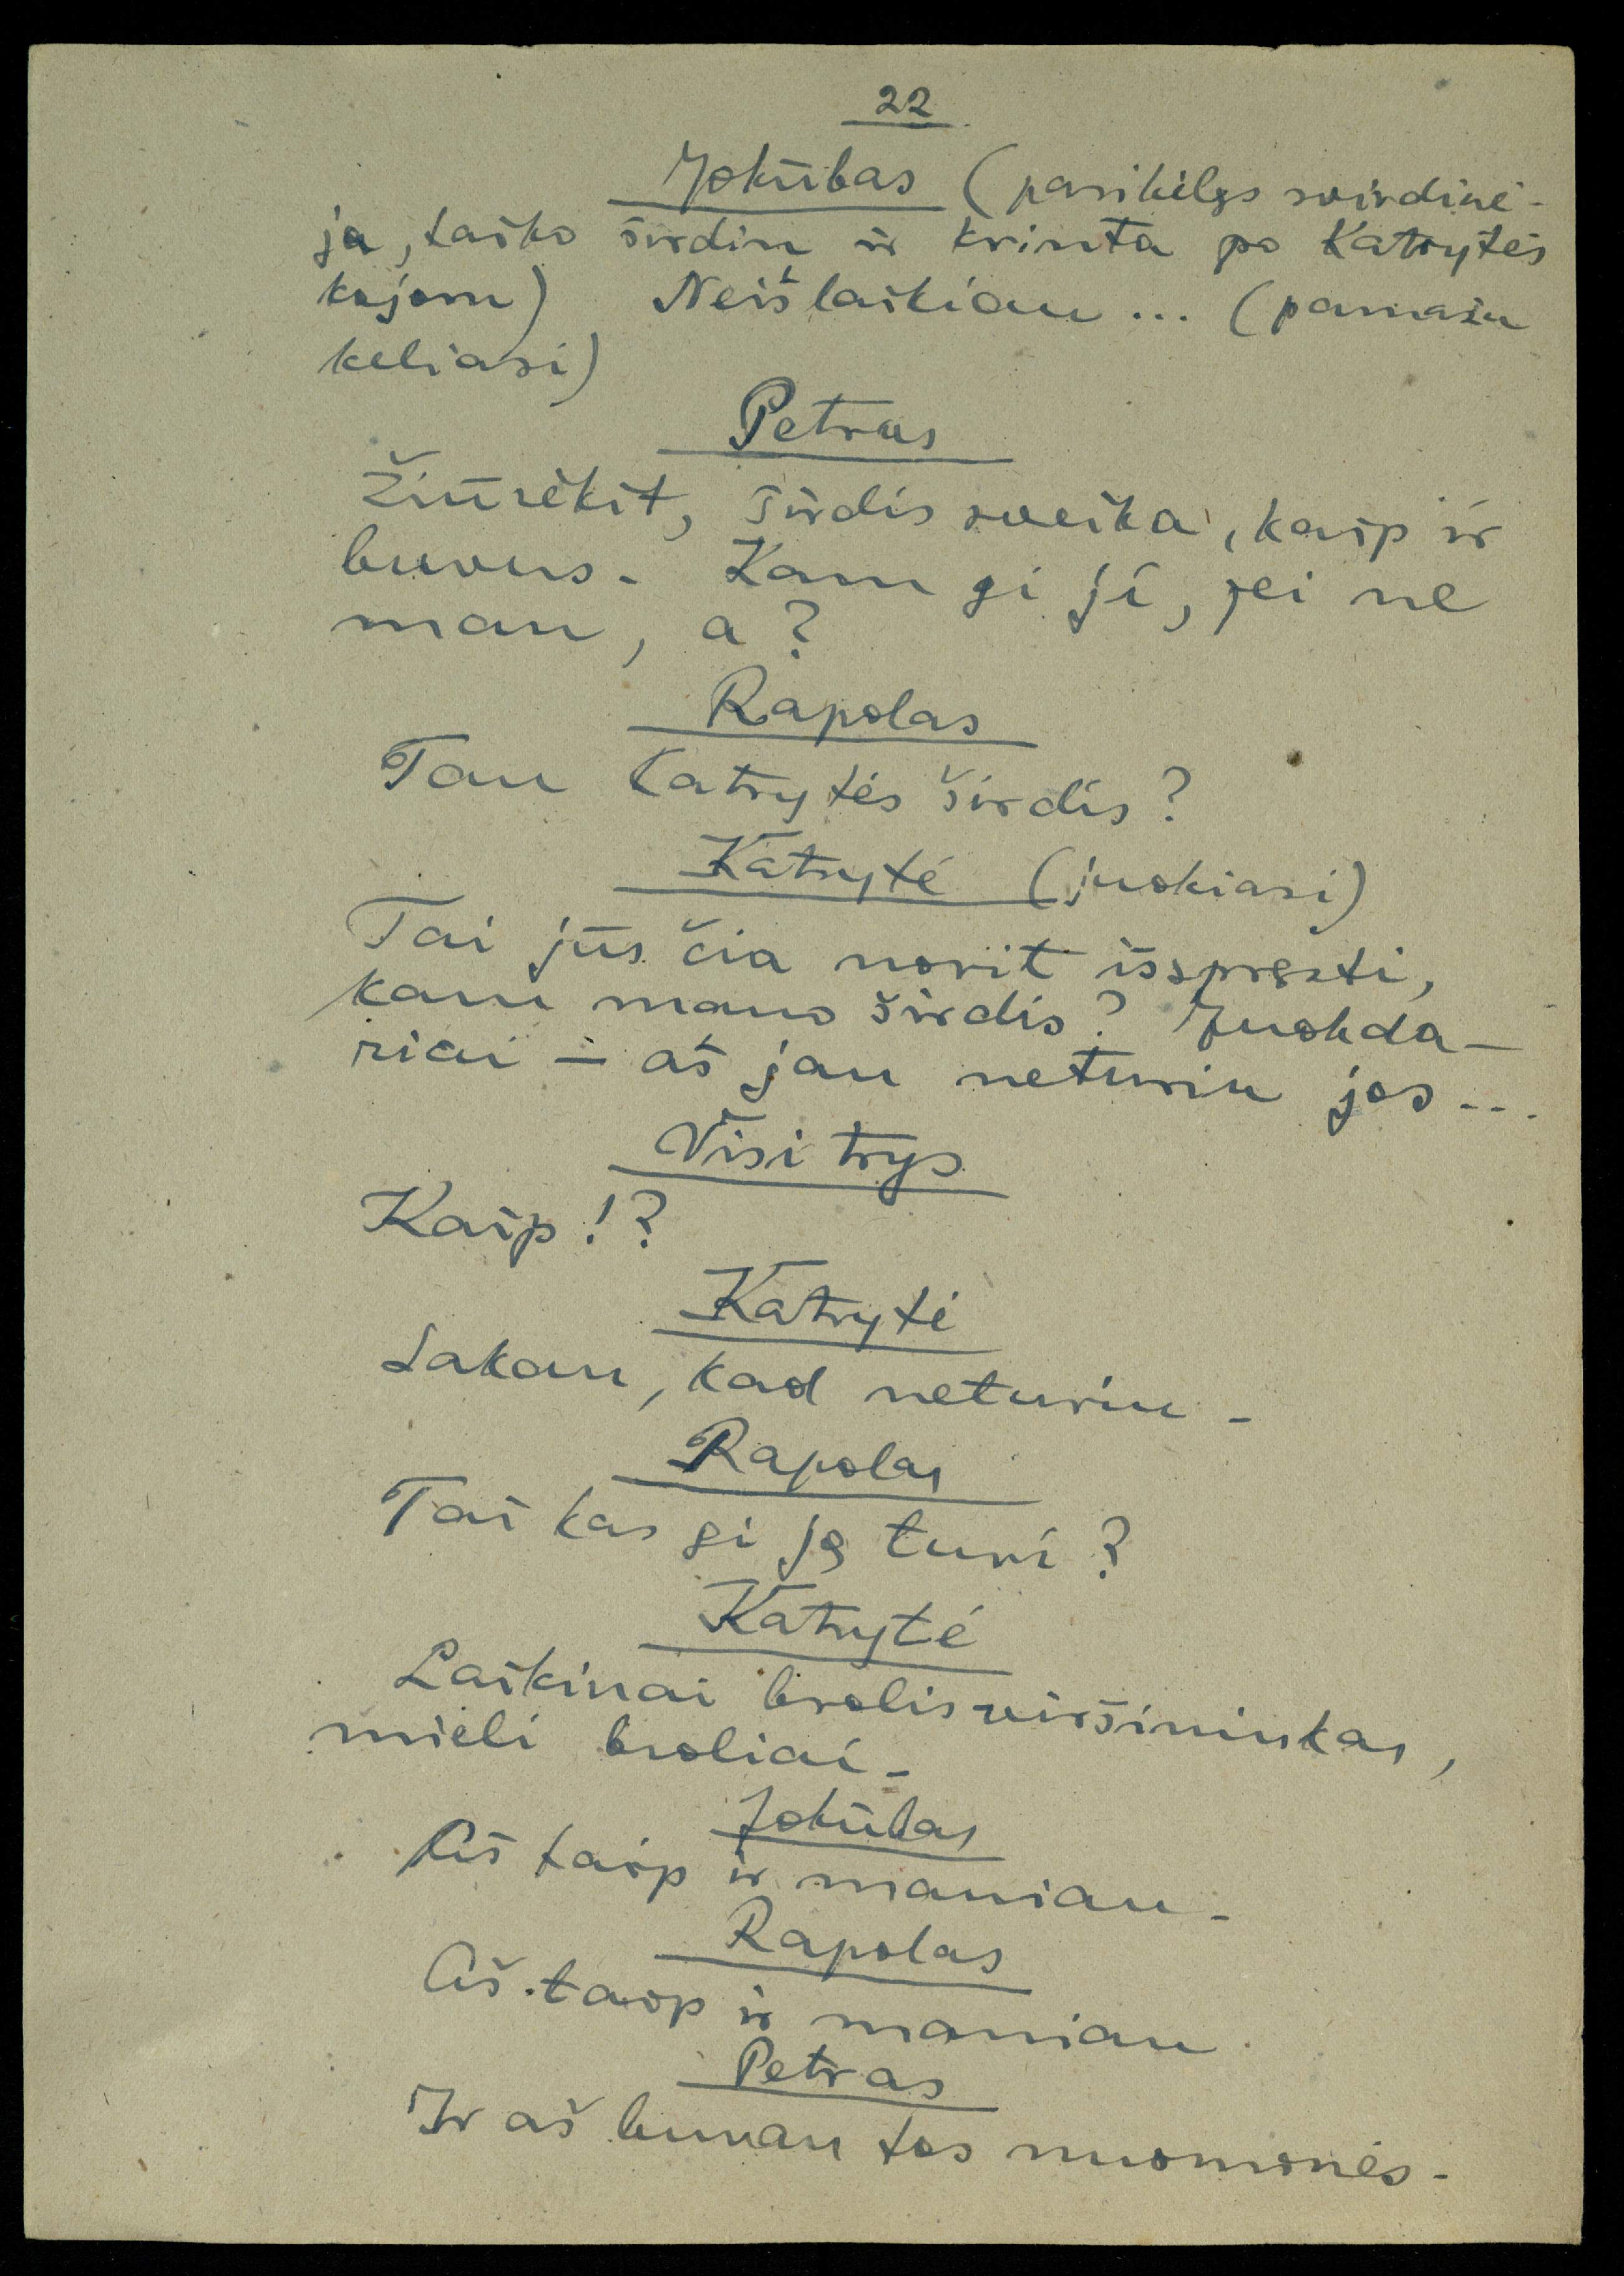 22
Jokūbas (pasikėlęs svirdinė-
ja, taiko širdin ir krinta po Katrytės
kojom) Neišlaikiau ... (pamažu
keliasi)
Petras
Žiūrėkit, širdis sveika, kaip ir
buvus. Kam gi ji, jei ne
man, a?
Rapolas
Tau Katrytės širdis?
Katrytė (juokiasi)
Tai jūs čia norit išspręsti,
kam mano širdis? Juokda-
riai – aš jau neturiu jos ...
Visi trys
Kaip!?
Katrytė
Sakau, kad neturiu.
Rapolas
Tai kas gi ją turi?
Katrytė
Laikinai brolis viršininkas,
mieli broliai.
Jokūbas
Aš taip ir maniau.
Rapolas
Aš taip ir maniau.
Petras
Ir aš buvau tos nuomonės.